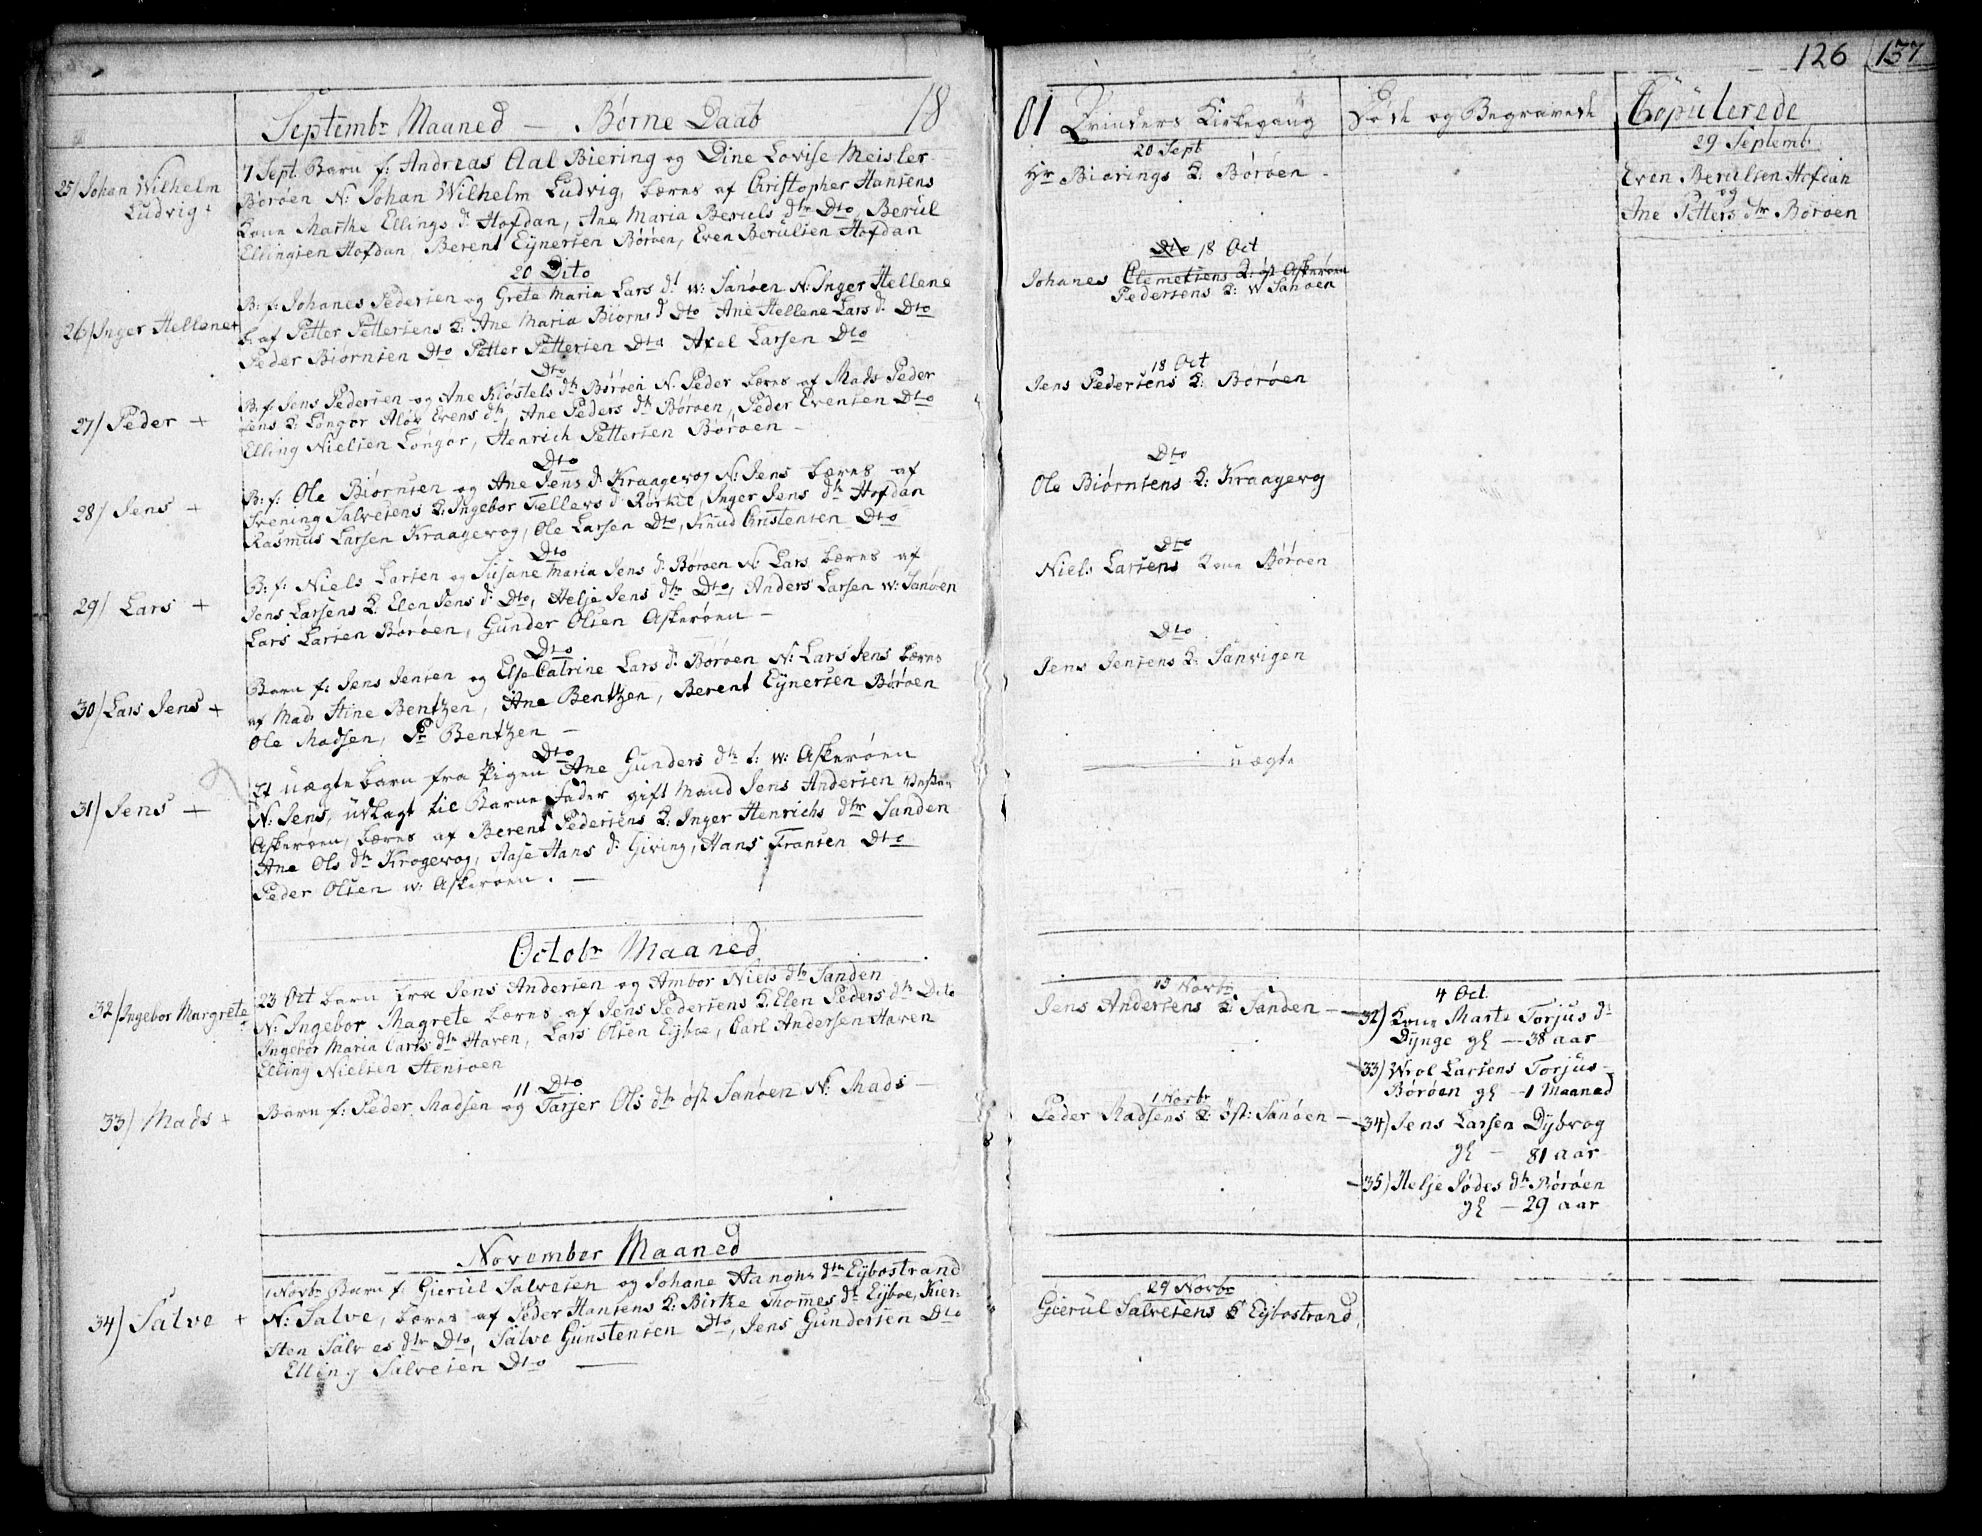 Septembr Maaned — Børne Daab 18
25) Johan Wilhelm
Ludvig +
7 Sept. Barn f: Andreas Aal Biering og Dine Lovise Meisler
Børøen N: Johan Wilhelm Ludvig, bæres af Christopher Hansens
Kone Marthe Ellings d. Hofdan, Ane Maria Beruls dtr Dto, Berul
Ellingsen Hofdan, Berent Eÿnersen Børøen, Even Berulsen Hofdan
20 Dito
26) Inger Hellene +
B: f: Johanes Pedersen og Grete Maria Lars d. w: Sanøen N: Inger Hellene
b. af Petter Pettersens K: Ane Maria Biørns d Dto Ane Hellene Lars d. Dto
Peder Biørnsen Dto Petter Pettersen Dto Axel Larsen Dto
Dto
27) Peder +
B: f: Jens Pedersen og Ane Kiøstels dtr Børøen N: Peder bæres af Mads Peder
sens K: Longør Aløv Evens dtr, Ane Peders dtr Børøen, Peder Evensen Dto
Elling Nielsen Longør, Henrich Pettersen Børøen —
Dto
28) Jens +
B: f: Ole Biørnsen og Ane Jens d. Kraagevog N: Jens bæres af
Svening Salvesens K: Ingebor Tellevs d. Rørkil, Inger Jens dtr Hofdan
Rasmus Larsen Kraagevog, Ole Larsen Dto, Knud Christensen Dto
Dto
29) Lars +
B: f: Niels Larsen og Susane Maria Jens d. Børøen N: Lars bæres af
Jens Larsens K. Elen Jens d. Dto, Helje Jens dtr Dto, Anders Larsen w: Sanøen
Lars Larsen Børøen, Gunder Olsen Askerøen —
Dto
30) Lars Jens +
Barn f: Jens Jensen og Else Catrine Lars d. Børøen N: Lars Jens bæres
af Mad. Stine Bentzen, Ane Bentzen, Berent Eÿnersen Børøen
Ole Madsen, Pr Bentzen —
Dto
31) Jens +
Et uægte barn fra Pigen Ane Gunders dtr f: w: Askerøen
N: Jens, udlagt til Barne Fader gift Mand Jens Andersen
Askerøen, bæres af Berent Pedersens K: Inger Henrichs dtr Sanden
Ane Ols dtr Krogevog, Aase Hans d. Giving, Hans Fransen Dto
Peder Olsen w: Askerøen. —
Octobr Maaned
32) Ingebor Margrete
23 Oct barn fra Jens Andersen og Ambor Niels dtr Sanden
N: Ingebor Magrete bæres af Jens Pedersens K. Elen Peders dtr Dito
Ingebor Maria Carls dtr Haven, Lars Olsen Eÿboe, Carl Andersen Haven
Elling Nielsen Stensøen
11 Dto
33) Mads +
Barn f: Peder Madsen og Tarjer Ols dtr øst Sanøen N: Mads —
November Maaned
34) Salve +
1 Novbr Barn f: Gierul Salvesen og Johane Aanons dtr Eÿbostrand
N: Salve, bæres af Peder Hansens K: Birthe Thommes dr Eÿboe, Kier-
sten Salves dtr Dto, Salve Gunstensen Dto, Jens Gundersen Dto
Elling Salvesen Dto —
126 137
01 Qvinders Kirkegang
Døde og Begravede
Copulerede
20 Sept
Hr Biørings K: Børøen -
Dto 18 Oct
Johanes Clemetsens K: øst Askerøen
Pedersens K: W Sanøen
18 Oct
Jens Pedersens K: Børøen
Dto
Ole Biørnsens K: Kraagevog
Dto
Niels Larsens Kone Børøen
Dto
Jens Jensens K: Sanvigen
uægte
15 Novbr
Jens Andersens K Sanden —
1 Novbr
Peder Madsens K: øst: Sanøen —
29 Novbr
Gierul Salvesens K Eÿbostrand,
4 Oct.
32) Kone Marte Torjus dr
Dynge gl — 38 aar
33) Wrol Larsens Torjus —
Børøen gl — 1 Maaned
34) Jens Larsen Dÿbvog
gl — 81 aar
35) Helje Jødes dtr Børøen
gl — 29 aar
29 Septemb
Even Berulsen Hofdan
og
Ane Petters dtr Børøen